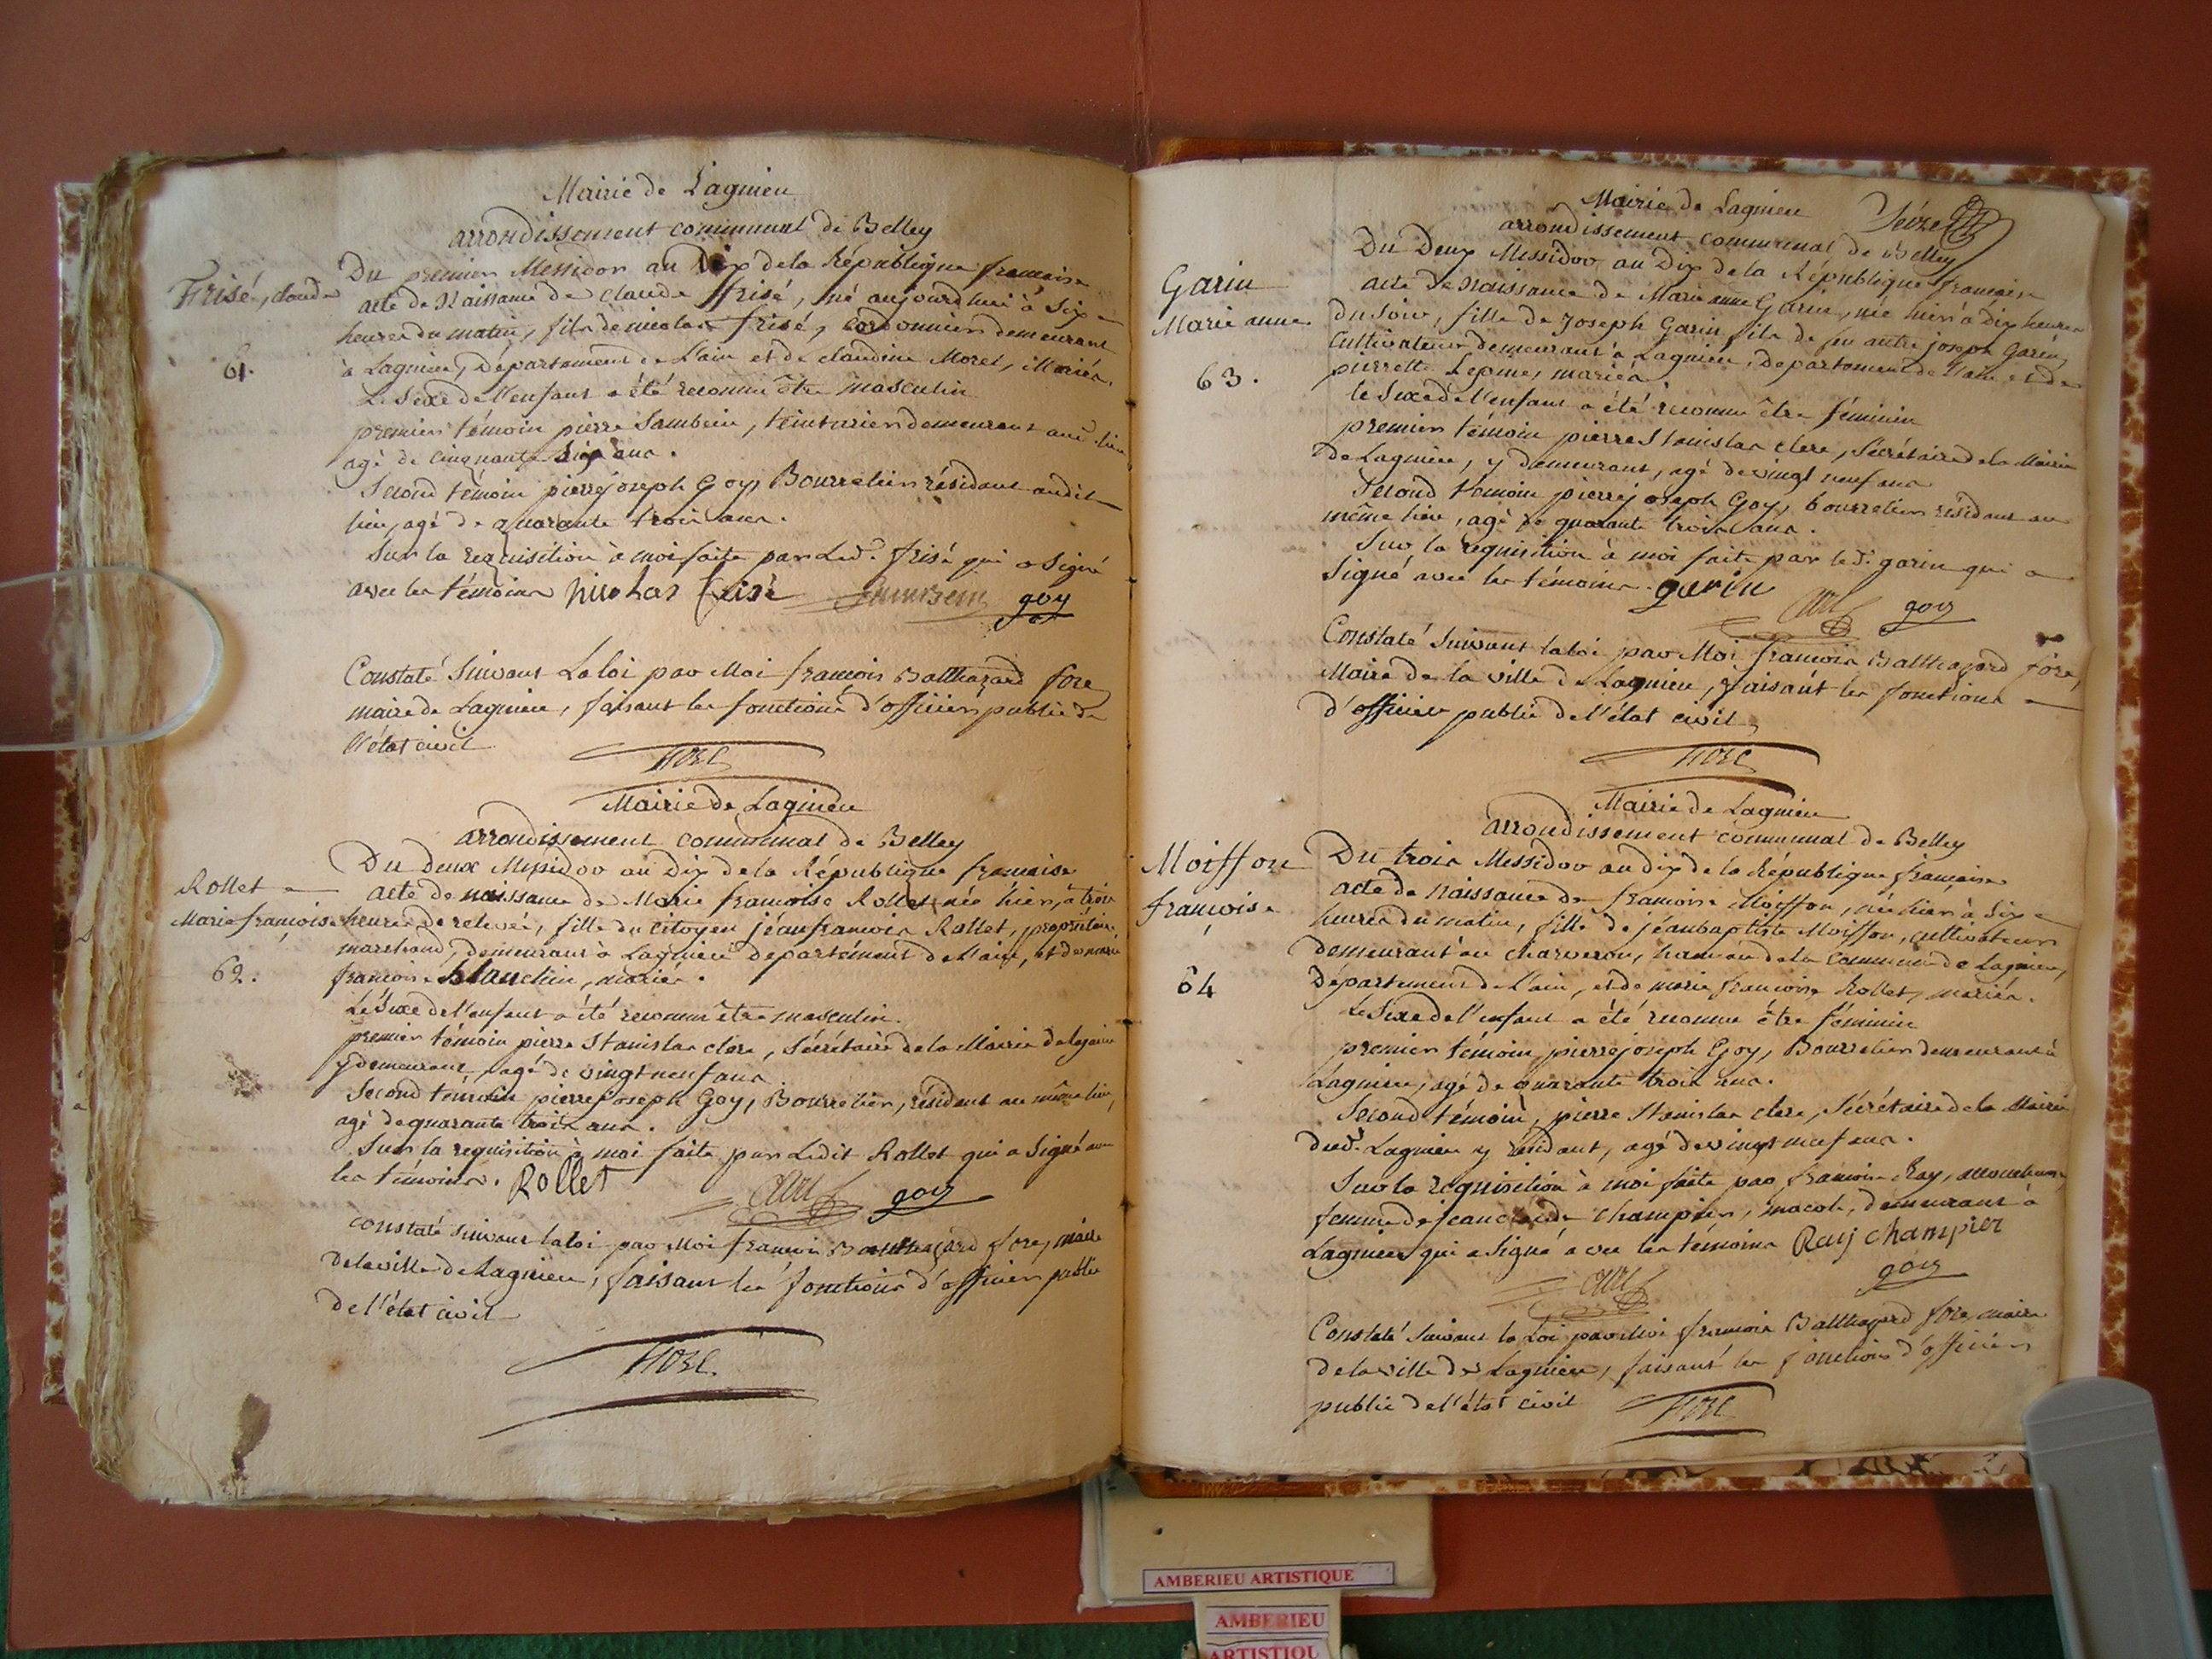 Mairie de Lagnieu
arrondissement communal de Belley
Frisé, claude
61.
Du premier Messidor an Dix de la République francaise
acte de Naissance de claude frisé, né aujourdhui à Six
heures du matin, fils de nicolas frisé, cordonnier demeurant
à Lagnieu, Département de L'ain et de claudine Morel, Mariés.
Le Sexe de l'enfant a été reconnu être masculin
premier témoin pierre Sambein, teinturier demeurant aud. lieu
agé de cinquante Six ans.
Second témoin pierre joseph Goy, Bourrelier résidant audit
lieu, agé de quarante trois ans.
Sur la requisition à moi faite par Led. frisé qui a Signé
avec les témoins nicolas frisé goy
Constaté Suivant La loi par Moi francois Balthazard fore
maire de Lagnieu, faisant les fonctions d'officier public de
l'état civil
fore
Mairie de Lagnieu
arrondissement communal de Belley
Rollet
Marie françoise
62.
Du deux Messidor an Dix de la République francaise
acte de naissance de Marie francoise Rollet, née hier, à trois
heures de relevée, fille du citoyen jéan francois Rollet, propriétaire,
marchand, demeurant à Lagnieu département de l'ain, et de marie
francoise blanchin, mariés.
Le Sexe de l'enfant a été reconnu être masculin.
premier témoin pierre Stanislas clere, Sécrétaire de la Mairie de Lagnieu
y demeurant, agé de vingt neuf ans
Second témoin pierre joseph Goy, Bourrelier, résidant au même lieu,
agé de quarante trois ans.
Sur la requisition à moi faite par Ledit Rollet qui a Signé avec
les témoins. Rollet goy
constaté suivant la loi par Moi francois Balthazard fore, maire
de la ville de Lagnieu, faisant les fonctions d'officier public
de l'état civil
fore
Mairie de Lagnieu Seize
arrondissement communal de Belley
Garin
Marie anne
63.
Du Deux Messidor an Dix de la République francaise
acte de naissance de Marie anne Garin, née hier à dix heures
du Soir, fille de Joseph Garin fils de feu autre joseph Garin,
Cultivateur demeurant à Lagnieu, département de l'ain et de
pierrette Lepine, mariés.
le Sexe de l'enfant a été reconnu être féminin
premier témoin pierre Stanislas clere, Sécrétaire de la Mairie
de Lagnieu, y demeurant, agé de vingt neuf ans
Second témoin pierre joseph Goy, bourrelier résidant au
même lieu, agé de quarante trois ans.
Sur la requisition à moi faite par led. garin qui a
Signé avec les témoins. garin
goy
Constaté Suivant la loi par Moi francois Balthazard fore,
Maire de la ville de Lagnieu, faisant les fonctions
d'officier public de l'état civil
fore
Mairie de Lagnieu
arrondissement communal de Belley
Moiffon
françoise
64
Du trois Messidor an dix de la République française
acte de naissance de francoise Moiffon, née hier à Six
heures du matin, fille de jéan baptiste Moiffon, cultivateur
demeurant au charveron, hameau de la Commune de Lagnieu,
Département de L'ain, et de marie francoise Rollet, mariés.
Le Sexe de l'enfant a été reconnu être féminin
premier témoin, pierre joseph Goy, Bourrelier demeurant à
Lagnieu, agé de quarante trois ans.
Second témoin, pierre Stanislas clere, Sécrétaire de la Mairie
dud. Lagnieu y résidant, agé de vingt neuf ans.
Sur la requisition à moi faite par francoise Ray, accoucheuse,
femme de jean claude champier, demeurant à
Lagnieu qui a Signé avec les témoins Ray champier
goy
Constaté Suivant la Loi par Moi francois Balthazard fore, maire
de la ville de Lagnieu, faisant les fonctions d'officier
public de l'état civil
fore
AMBERIEU ARTISTIQUE
AMBERIEU
ARTISTIQU